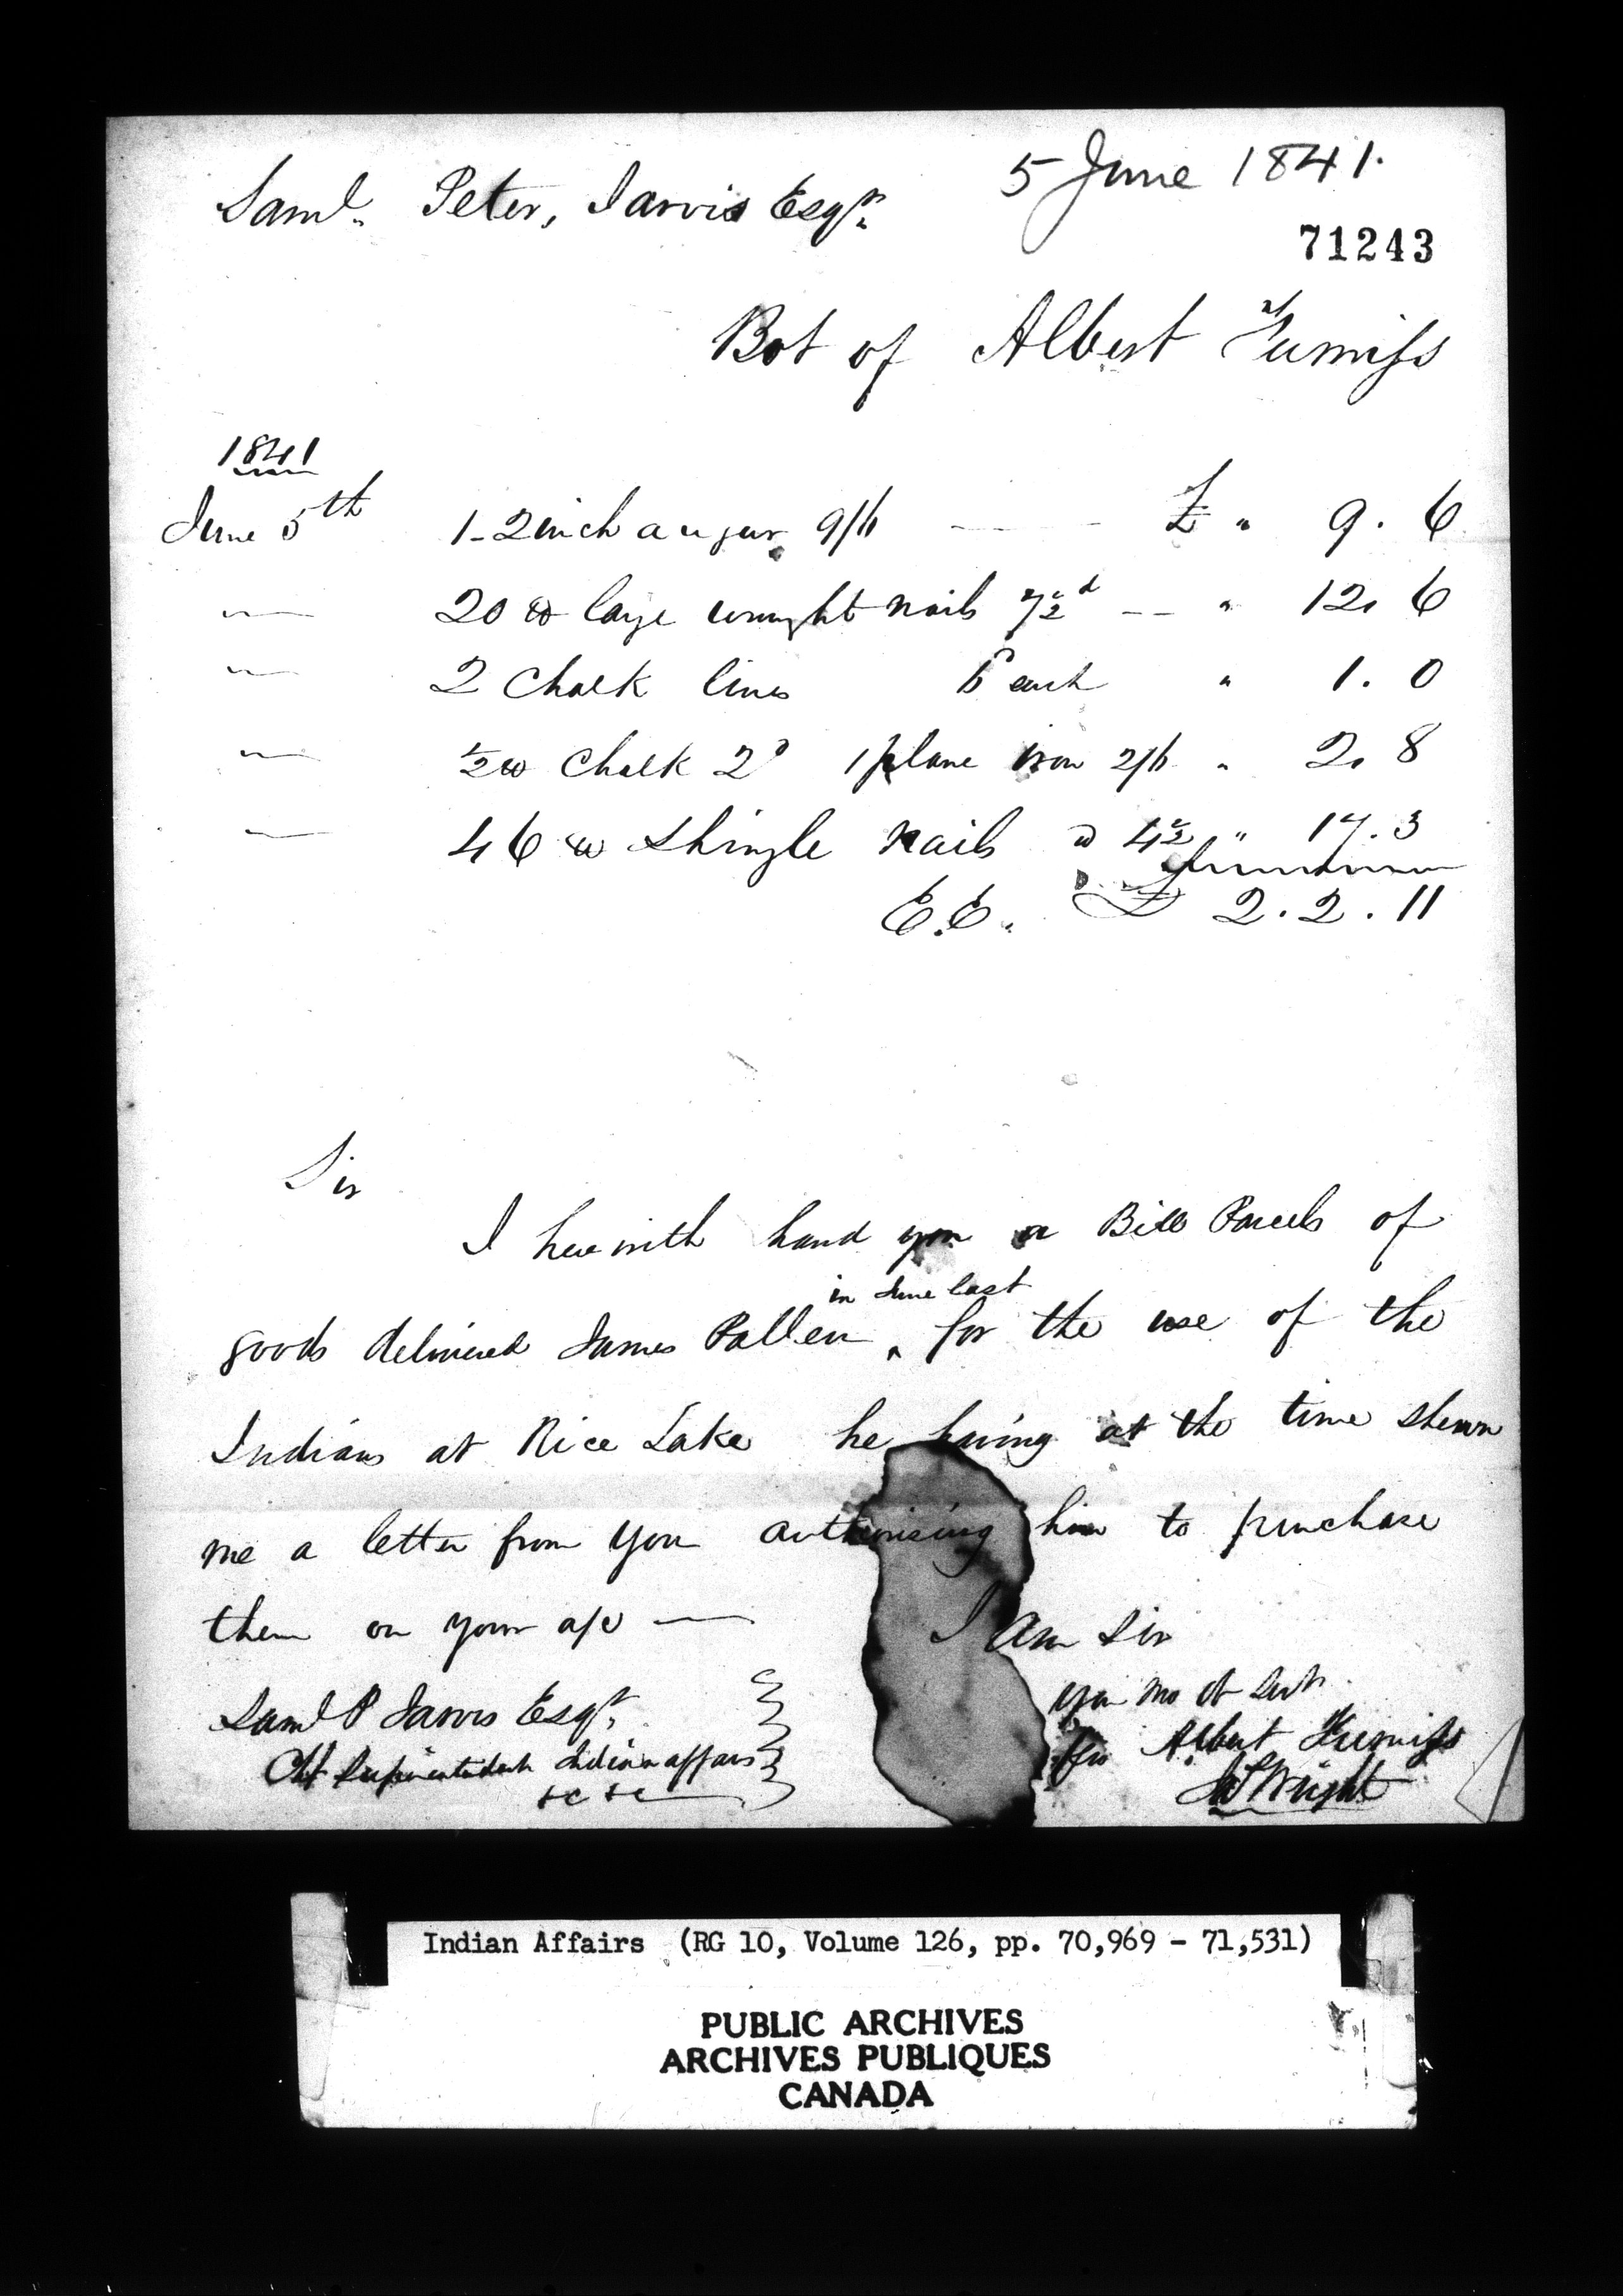 5 June 1841.
Saml. Peter, Jarvis Esqr.
71243
Bot of Albert Furniss
1841
June 5th 1-2 inch augur 9/6 — — £ " 9. 6
— 20 lb large wrought nails 7½d — — " 12. 6
— 2 Chalk lines 6d each " 1. 0
— ½ lb Chalk 2d 1 plane iron 2/6 " 2. 8
— 46 lb Shingle Nails @ 4½ " 17. 3
E.E. £ 2. 2. 11
Sir
I herewith hand you a Bill Parcels of
in June last
goods delivered James Pallen ^ for the use of the
Indians at Rice Lake he having at the time shewn
me a letter from you authorising him to purchase
them on your a/c —
I Am Sir
Saml P Jarvis Esqr.
Your Mo Ob Servt.
Chf Superintendent Indian affairs
for Albert Furniss
&c &c
Wright
Indian Affairs (RG 10, Volume 126, pp. 70,969 - 71,531)
PUBLIC ARCHIVES
ARCHIVES PUBLIQUES
CANADA